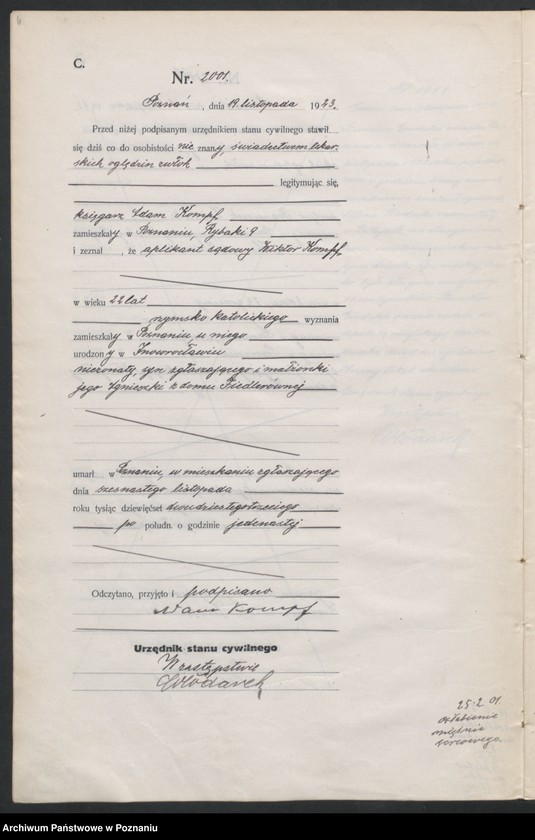 C.
Nr. 2001.
Poznań, dnia 19. listopada 1923.
Przed niżej podpisanym urzędnikiem stanu cywilnego stawił
się dziś co do osobistości nie znany, świadectwem lekar-
skich oględzin zwłok
legitymując się,
księgarz Adam Kompf
zamieszkały w Poznaniu, Rybaki 9
i zeznał, że aplikant sądowy Wiktor Kompf,
w wieku 22 lat
rzymsko katolickiego wyznania
zamieszkały w Poznaniu, u niego
urodzony w Inowrocławiu
nieżonaty, syn zgłaszającego i małżonki
jego Agnieszki z domu Fiedlerównej
umarł w Poznaniu, w mieszkaniu zgłaszającego
dnia szesnastego listopada
roku tysiąc dziewięćset dwudziestegotrzeciego
po połudn. o godzinie jedenastej
Odczytano, przyjęto i podpisano
Adam Kompf
Urzędnik stanu cywilnego
W zastępstwie
Włodarek
25.2.01.
osłabienie
mięśnia
sercowego.
Archiwum Państwowe w Poznaniu